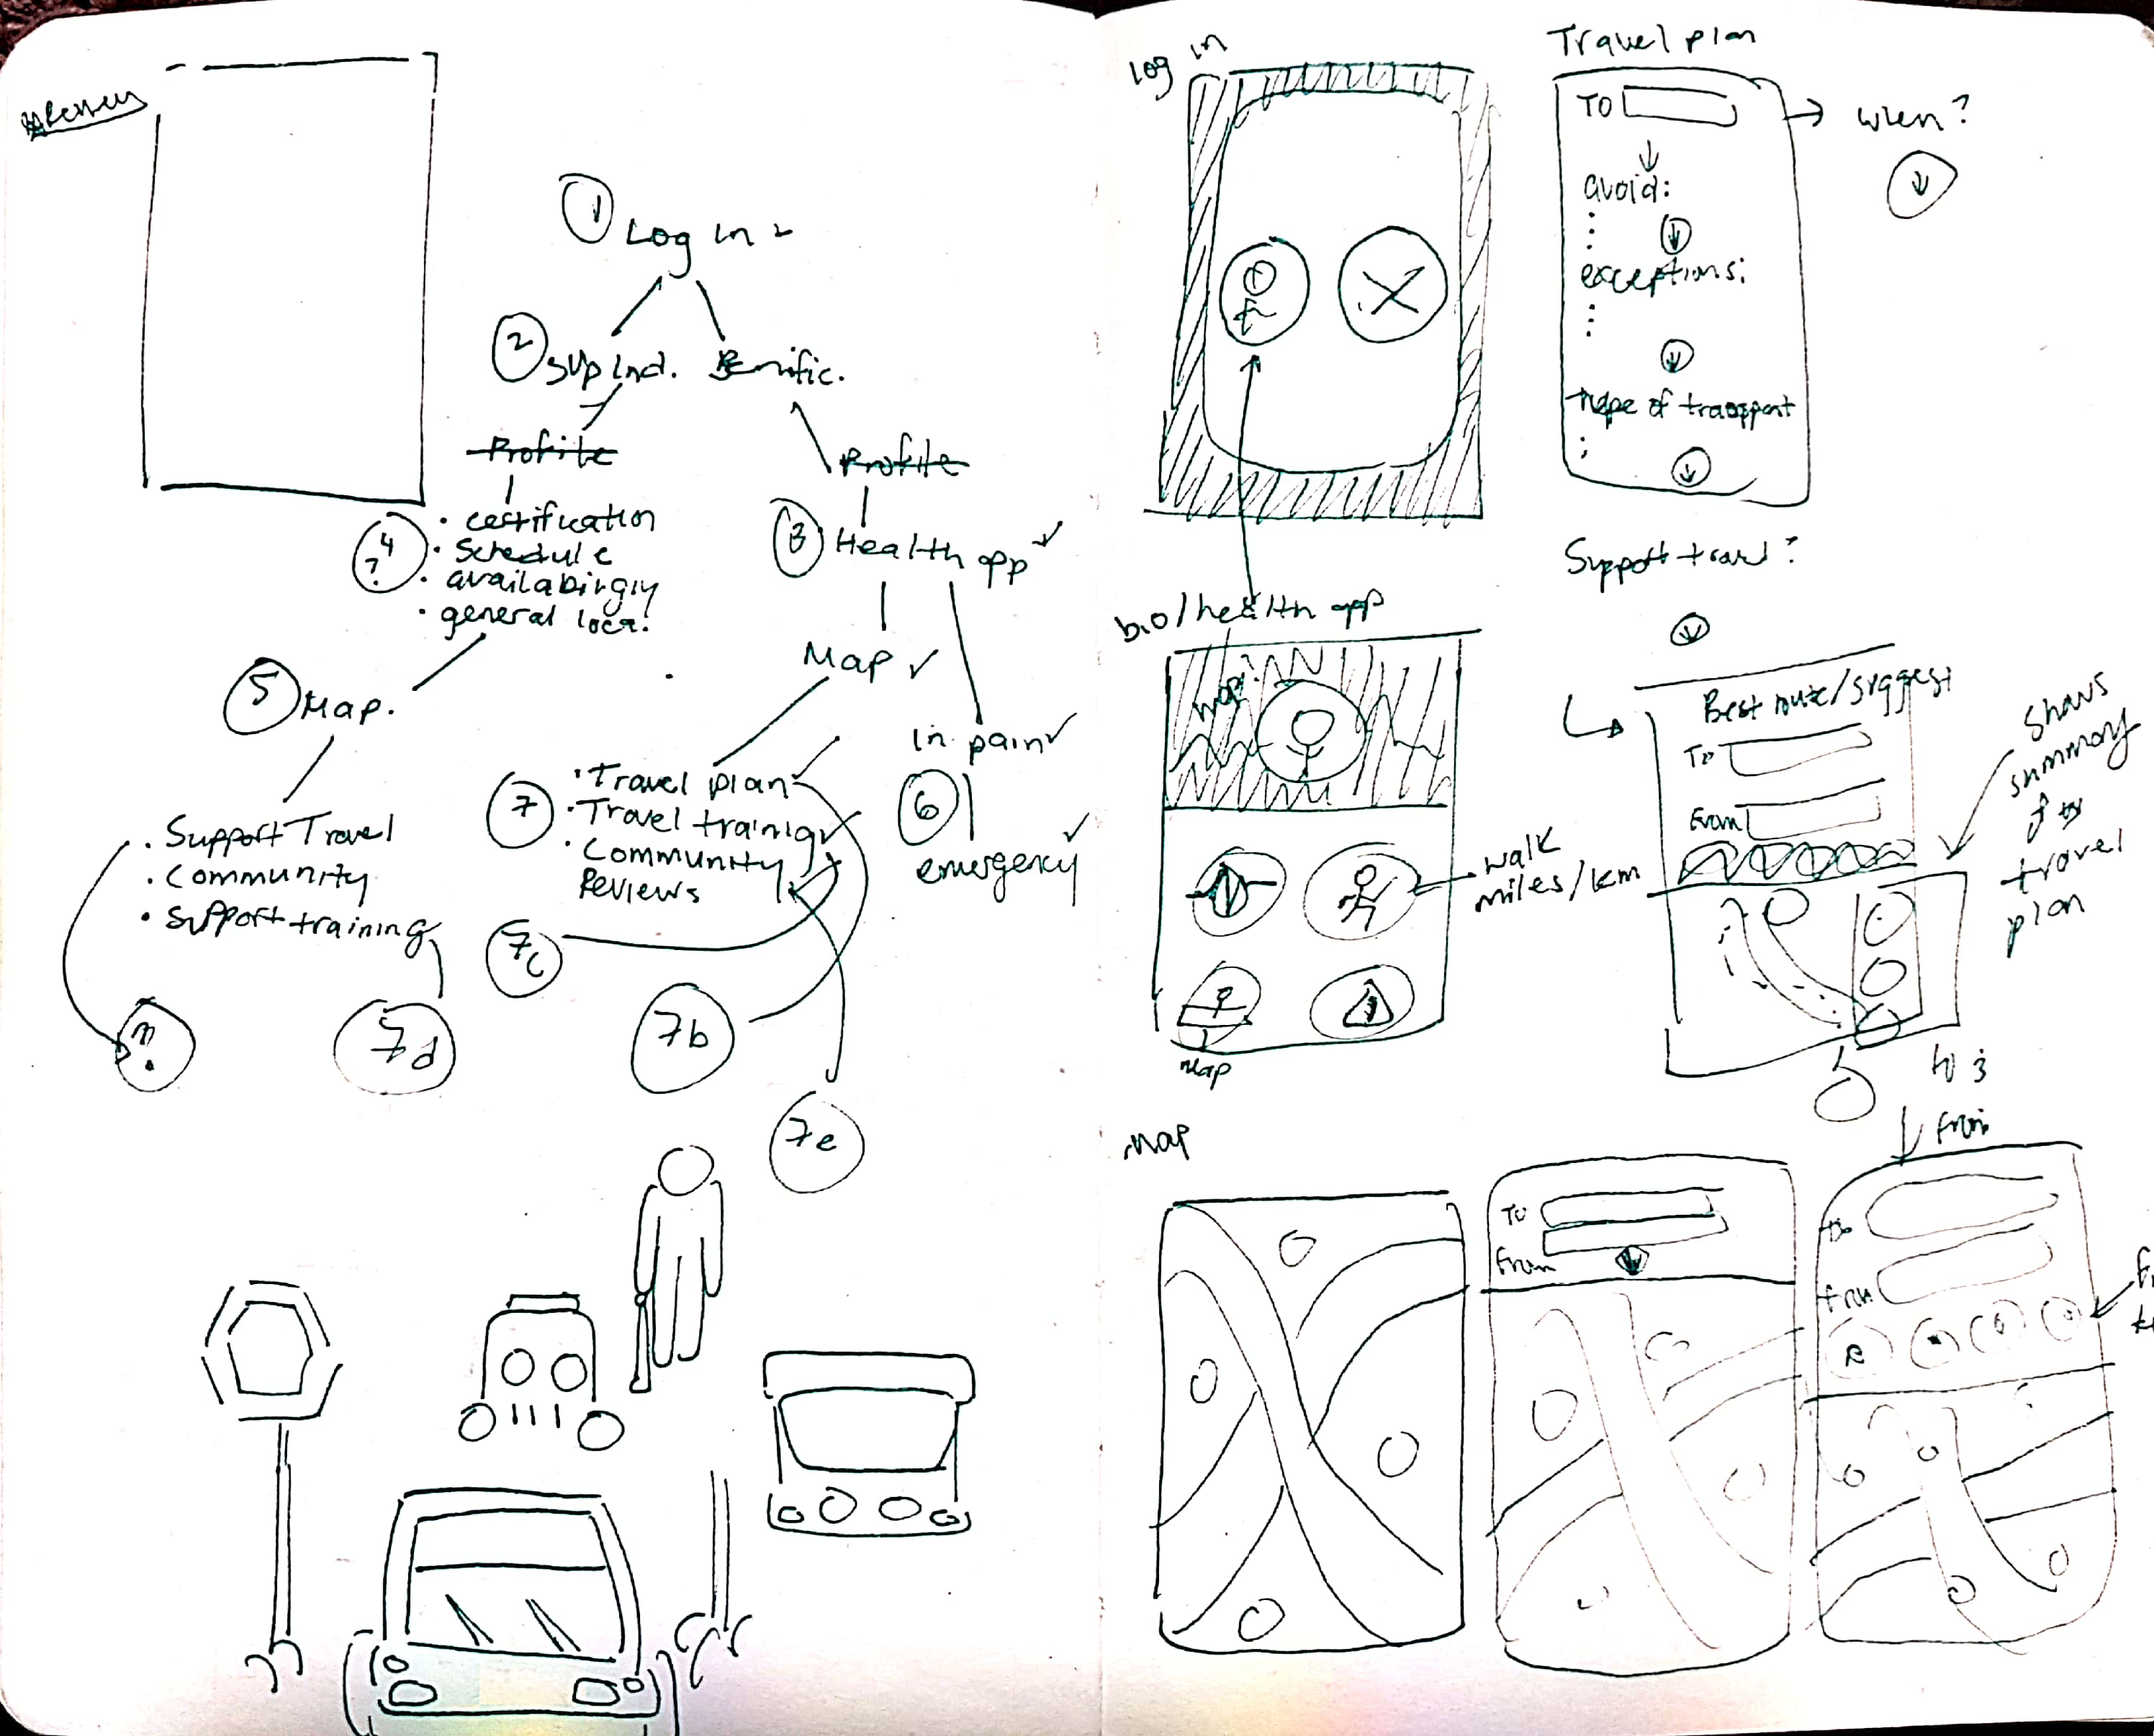 1
Log in
2
Sup Ind. Benific.
Profile
Profile
4
?
• certification
• Schedule
• availabingly
• general loca.
3
Health app
Map
5
Map.
in pain
7
• Travel plan
• Travel training
• Community
Reviews
6
emergency
• Support Travel
• Community
• Support training
7c
7b
7e
Log in
Travel plan
TO
when?
avoid:
exceptions:
type of transport
Support travel?
bio/health app
Best route/suggest
To
From
shows
summary
travel
plan
walk
miles/km
Map
to 3
from
Map
To
From
to
from